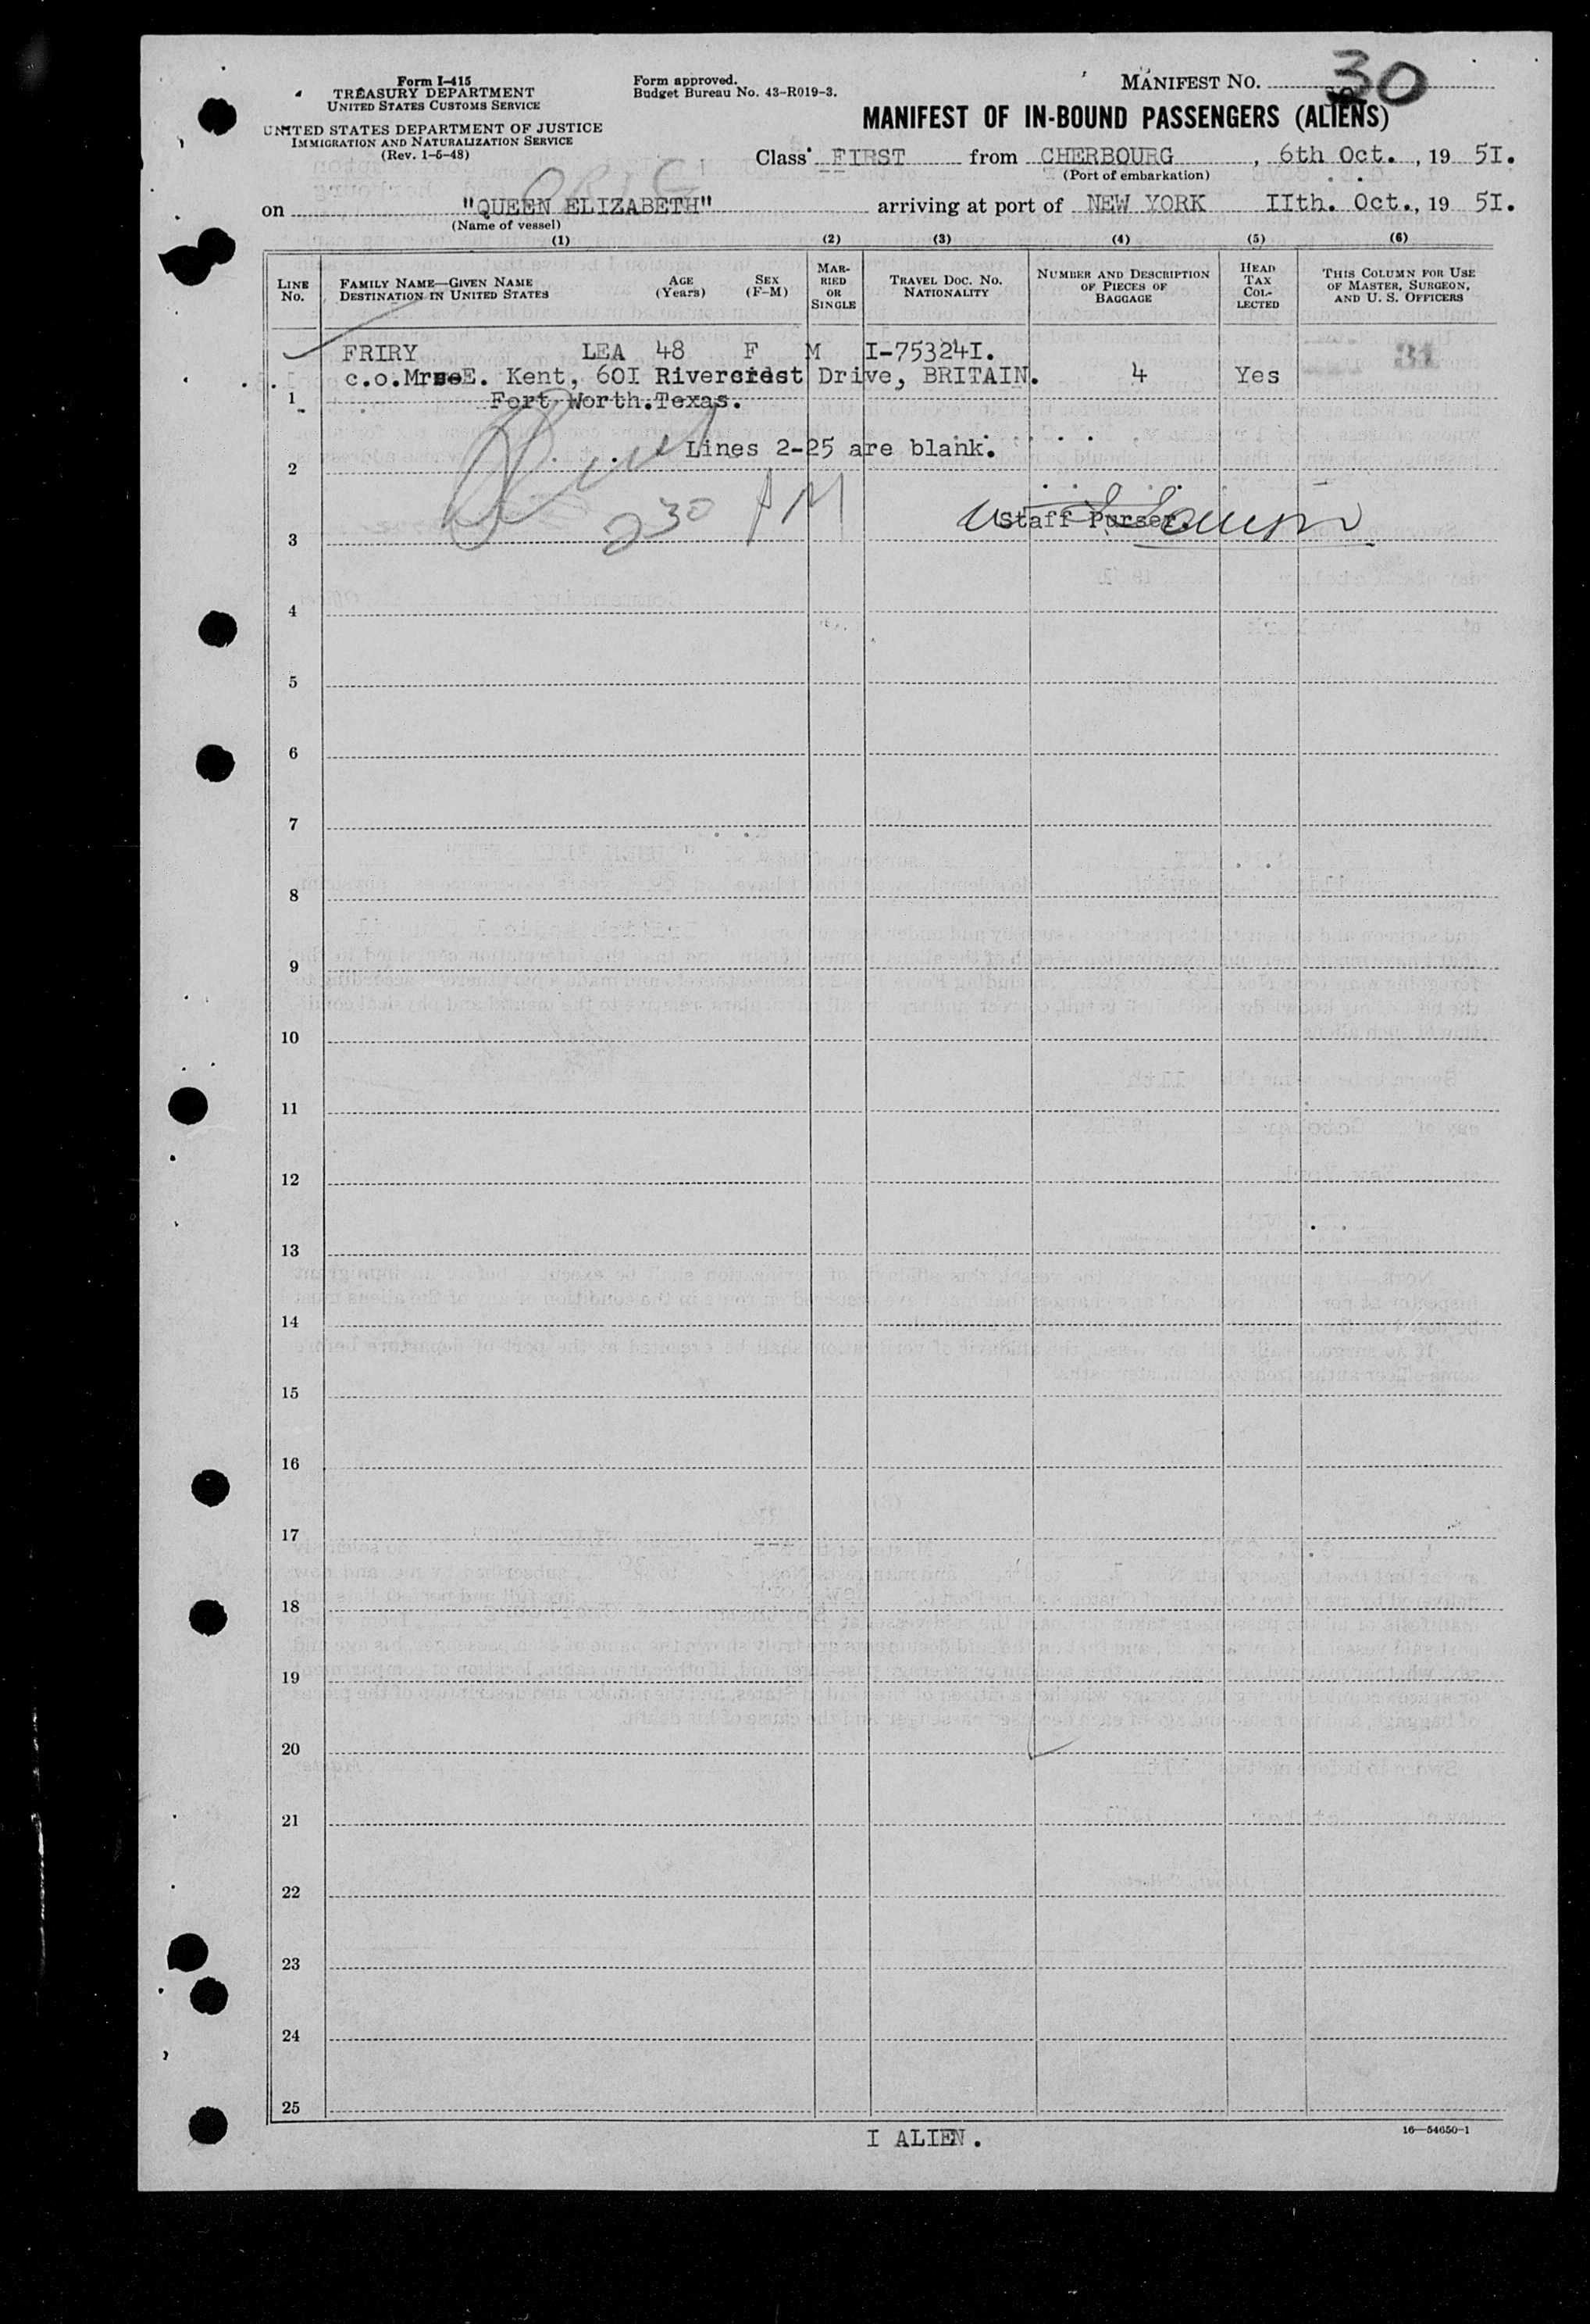 Form I-415
TREASURY DEPARTMENT
UNITED STATES CUSTOMS SERVICE
UNITED STATES DEPARTMENT OF JUSTICE
IMMIGRATION AND NATURALIZATION SERVICE
(Rev. 1-5-48)
Form approved.
Budget Bureau No. 43-R019-3.
MANIFEST NO. 30
MANIFEST OF IN-BOUND PASSENGERS (ALIENS)
Class FIRST from CHERBOURG, 6th Oct., 19 5I.
(Port of embarkation)
ORIG
on "QUEEN ELIZABETH" arriving at port of NEW YORK IIth. Oct., 19 5I.
(Name of vessel)
(1) (2) (3) (4) (5) (6)
LINE No. FAMILY NAME—GIVEN NAME DESTINATION IN UNITED STATES AGE (Years) SEX (F-M) MARRIED OR SINGLE TRAVEL DOC. NO. NATIONALITY NUMBER AND DESCRIPTION OF PIECES OF BAGGAGE HEAD TAX COLLECTED THIS COLUMN FOR USE OF MASTER, SURGEON, AND U. S. OFFICERS
FRIRY LEA 48 F M I-75324I.
c.o. E. Kent, 60I Rivercrest Drive, BRITAIN. 4 Yes
1 Fort Worth.Texas.
Lines 2-25 are blank.
2
230 AM
Staff Purser.
3
4
5
6
7
8
9
10
11
12
13
14
15
16
17
18
19
20
21
22
23
24
25
I ALIEN.
16—54650-1